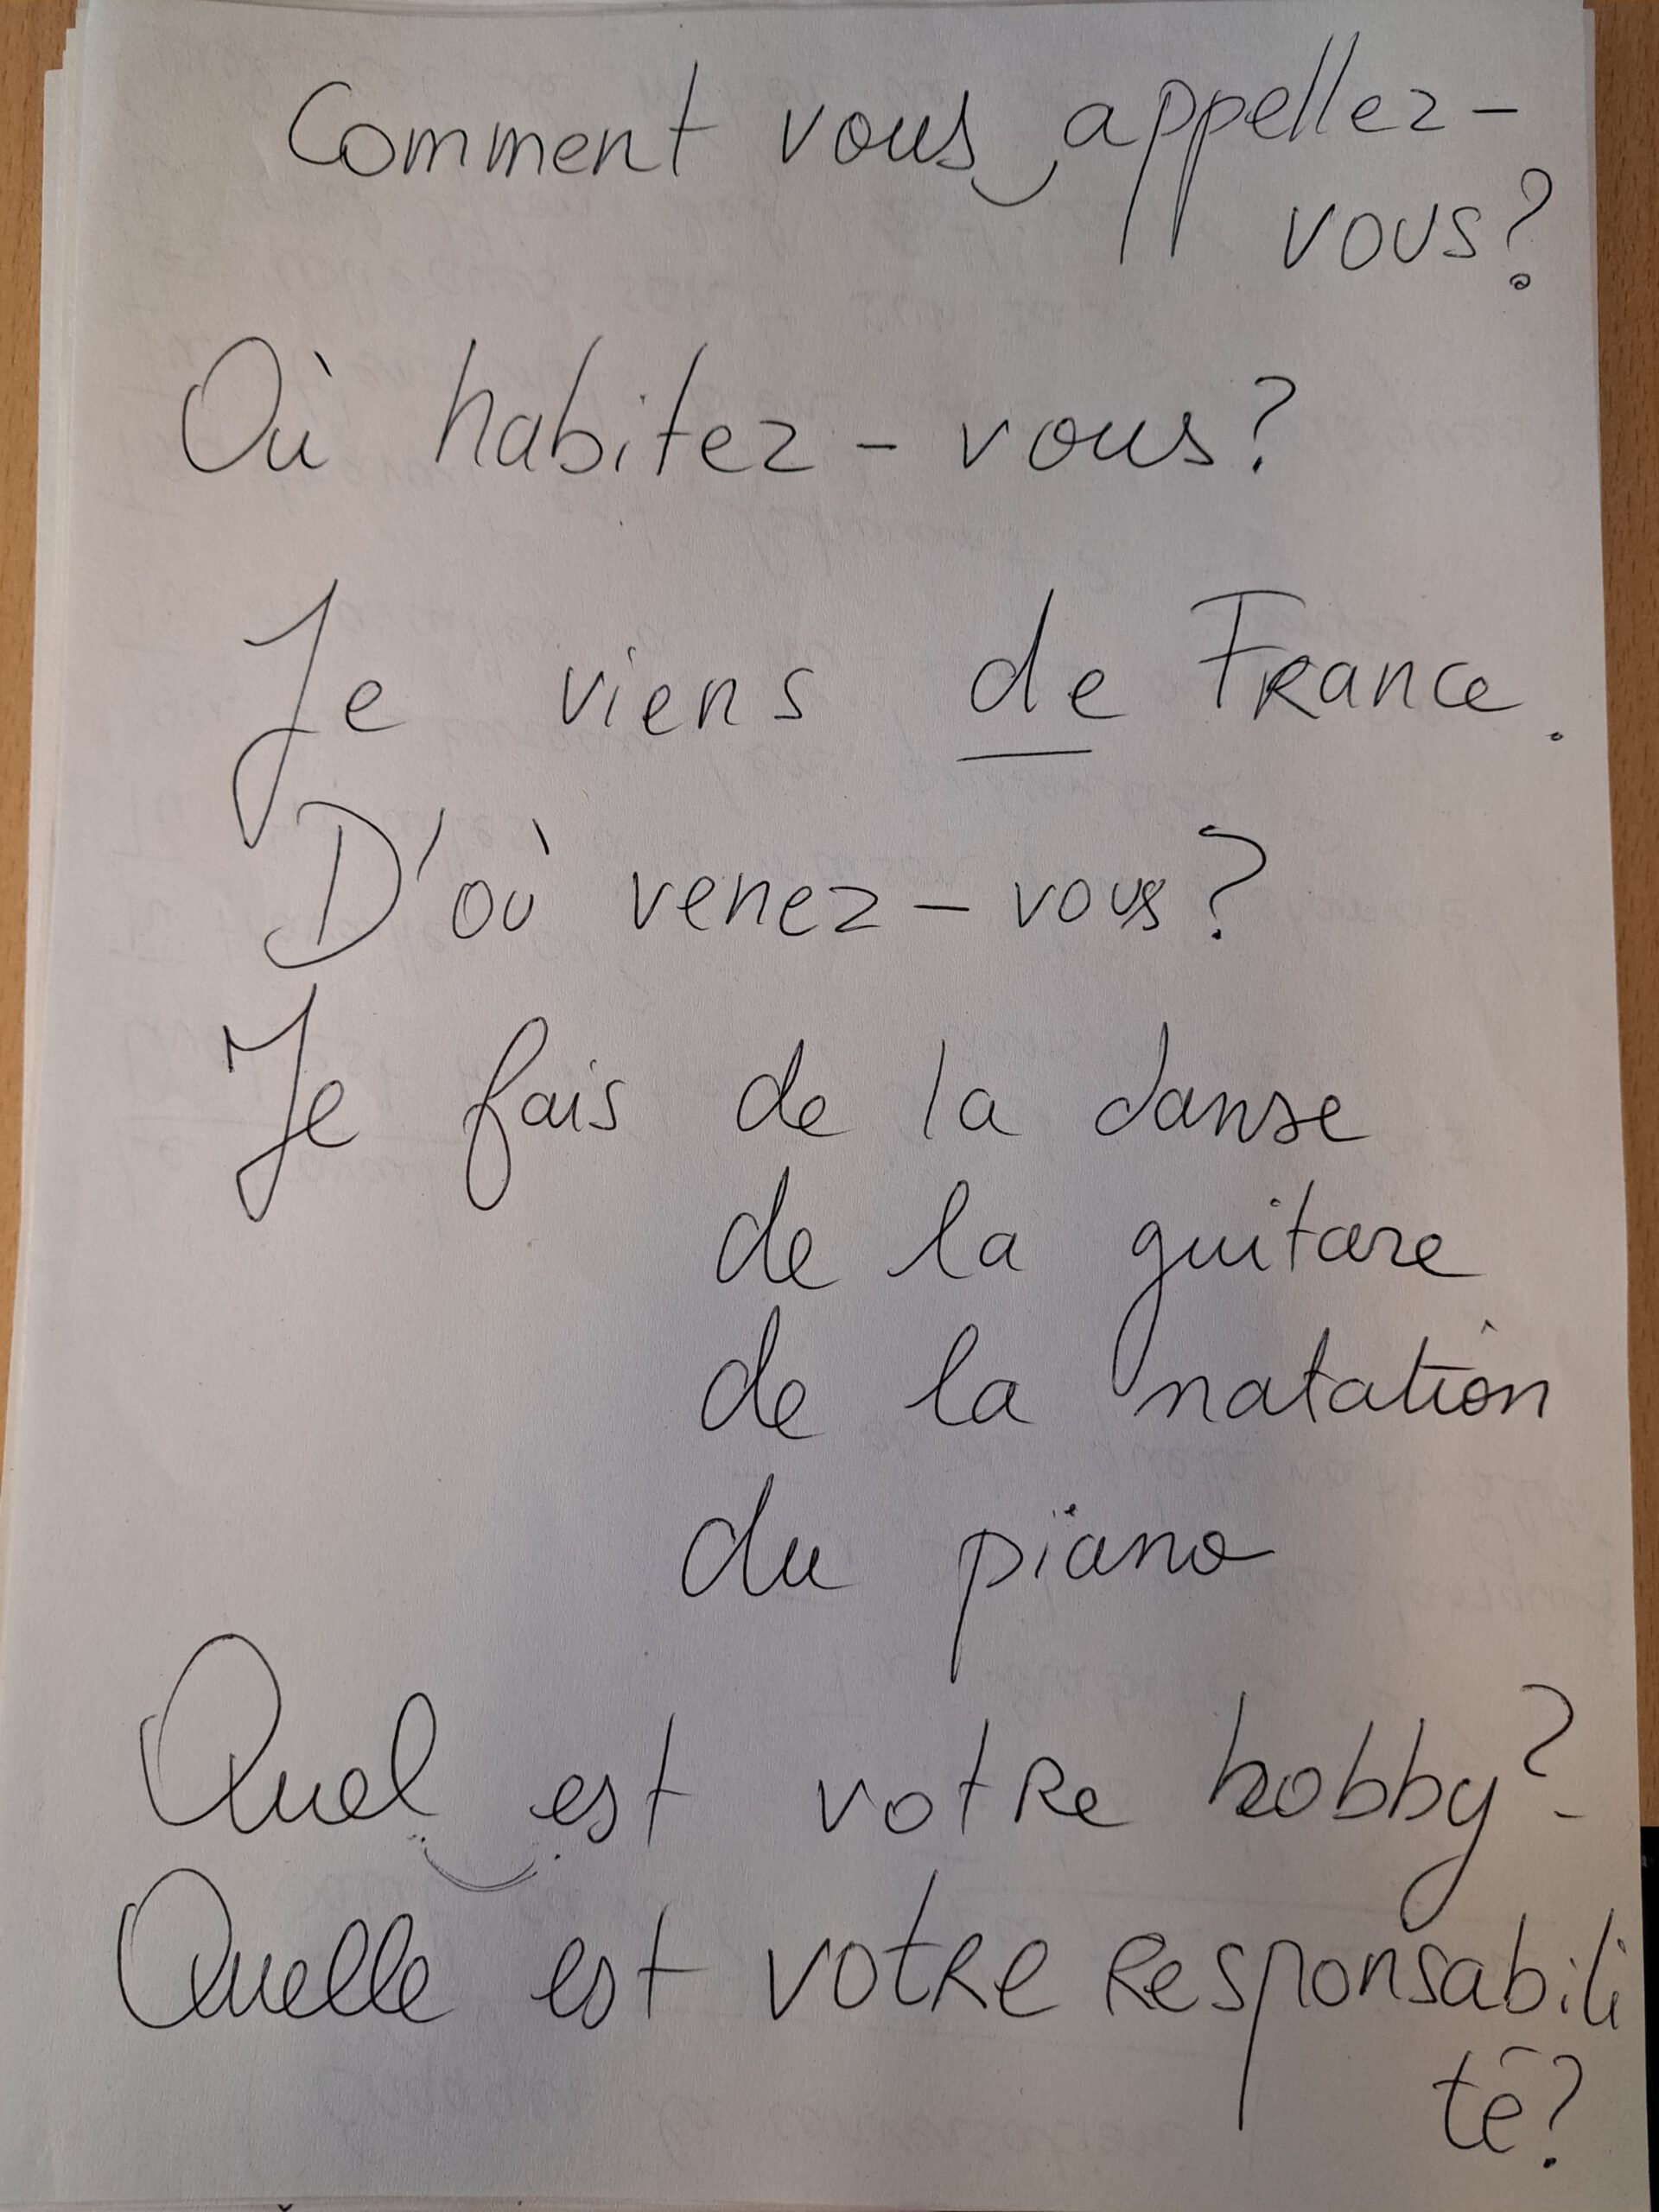 Comment vous appellez-
vous?
Où habitez-vous?
Je viens de France.
D'où venez-vous?
Je fais de la danse
de la guitare
de la natation
du piano
Quel est votre hobby?
Quelle est votre responsabili
té?